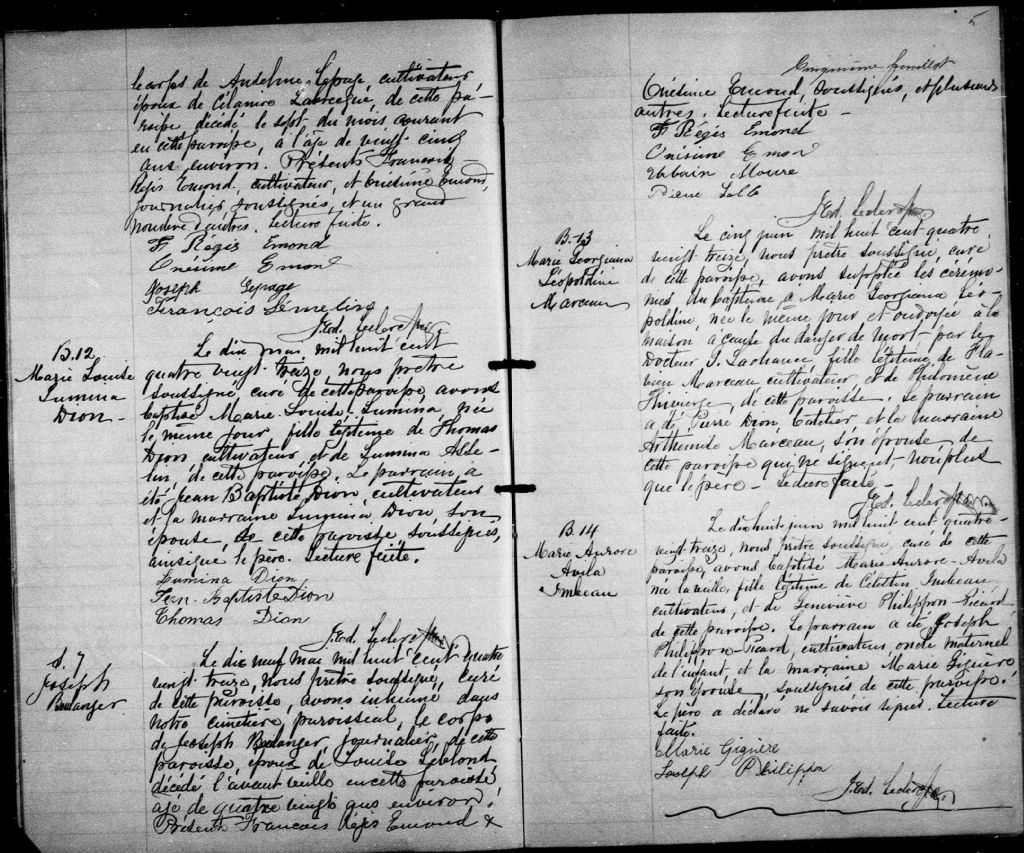 le corps de Anselme Lepage, cultivateur,
époux de Célanire Labrecque, de cette pa-
roisse décédé le sept du mois courant
en cette paroisse, à l'âge de vingt-cinq
ans environ. Présents François
Régis Emond, cultivateur, et Onésime Emond,
journalier soussignés, et un grand
nombre d'autres. Lecture faite.
F Régis Emond
Onésime Emond
Joseph Lepage
François Lemelin
J. Ed. Leclerc Ptre
B. 12
Marie Louise
Lumina
Dion
Le dix mai mil huit cent
quatre vingt treize, nous prêtre
soussigné, curé de cette paroisse, avons
baptisé Marie-Louise-Lumina, née
le même jour, fille légitime de Thomas
Dion cultivateur, et de Lumina Asse-
lin, de cette paroisse. Le parrain, a
été Jean Baptiste Dion, cultivateur
et la marraine Lumina Dion son
épouse, de cette paroisse soussignés,
ainsi que le père. Lecture faite.
Lumina Dion
Jean-Baptiste Dion
Thomas Dion
J. Ed. Leclerc Ptre
S. 7
Joseph
Boulanger
Le dix neuf mai mil huit cent quatre
vingt treize, nous prêtre soussigné, curé
de cette paroisse, avons inhumé dans
notre cimetière paroissial, le corps
de Joseph Boulanger journalier, de cette
paroisse, époux de Louise Leblond
décédé l'avant veille en cette paroisse
agé de quatre vingt ans environ.
Présents François Régis Emond &
5
Cinquième feuillet
Onésime Emond, soussignés, et plusieurs
autres. Lecture faite -
F Régis Emond
Onésime Emond
Urbain
Pierre
J. Ed. Leclerc Ptre
B. 13
Marie Georgiana
Léopoldine
Marceau
Le cinq juin mil huit cent quatre
vingt treize, nous prêtre soussigné, curé
de cette paroisse, avons supplée les cérémo-
nies du baptême à Marie Georgiana Léo-
poldine, née le même jour et ondoyée à la
maison à cause du danger de mort, par le
Docteur J. Lachance, fille légitime de Fla-
bien Marceau cultivateur, et de Philomène
Thivierge, de cette paroisse. Le parrain
a été Pierre Dion, batelier, et la marraine
Arthémise Marceau, son épouse, de
cette paroisse qui ne signent, non plus
que le père - Lecture faite -
J. Ed. Leclerc Ptre
B. 14
Marie Aurore
Avila
Imbeau
Le dix huit juin mil huit cent quatre-
vingt-treize, nous prêtre soussigné, curé de cette
paroisse, avons baptisé Marie-Aurore-Avila
née la veille, fille légitime de Célestin Imbeau,
cultivateur, et de Geneviève Philippon-Picard
de cette paroisse. Le parrain a été Joseph
Philippon-Picard, cultivateur, oncle maternel
de l'enfant, et la marraine Marie Giguère
son épouse, soussignés de cette paroisse.
Le père a déclaré ne savoir signer. Lecture
faite.
Marie Giguère
Joseph Philippon
J. Ed. Leclerc Ptre